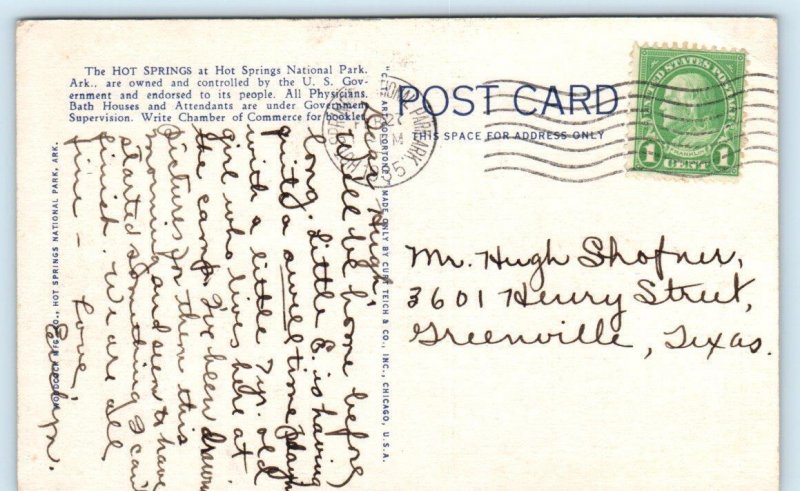 The HOT SPRINGS at Hot Springs National Park,
Ark., are owned and controlled by the U. S. Gov-
ernment and endorsed to its people. All Physicians,
Bath Houses and Attendants are under Government
Supervision. Write Chamber of Commerce for booklet.
WOODCOCK MFG. CO., HOT SPRINGS NATIONAL PARK, ARK.
"C.T. ART COLORTONE" MADE ONLY BY CURT TEICH & CO., INC., CHICAGO, U.S.A.
POST CARD
THIS SPACE FOR ADDRESS ONLY
NATIONAL PARK, ARK.
UNITED STATES POSTAGE
FRANKLIN
1 CENT 1
Dear Hugh,
We'll be home before
long. Little E. is having
quite a swell time playing
with a little 7 yr. old
girl who lives here at
the camp. I've been drawing
pictures for them this
morning and seem to have
started something I can't
finish. We are all
fine –
Love,
Mr. Hugh Shofner,
3601 Henry Street,
Greenville, Texas.